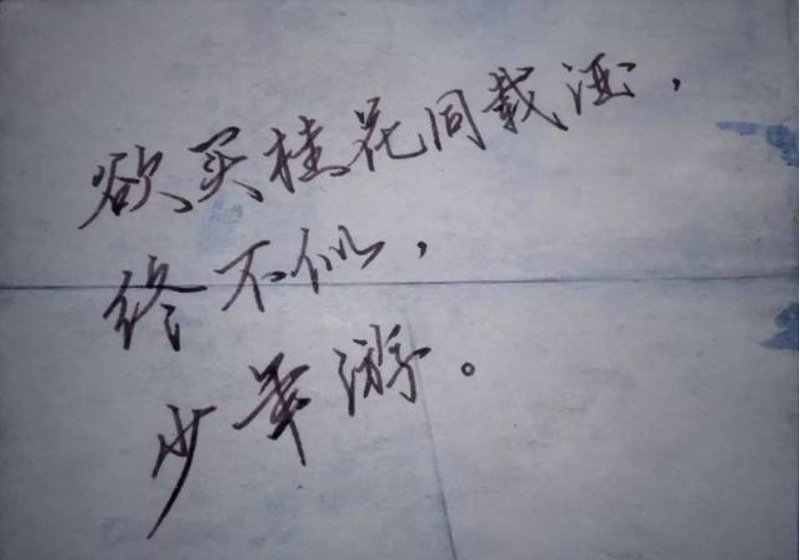 欲买桂花同载酒，
终不似，
少年游。